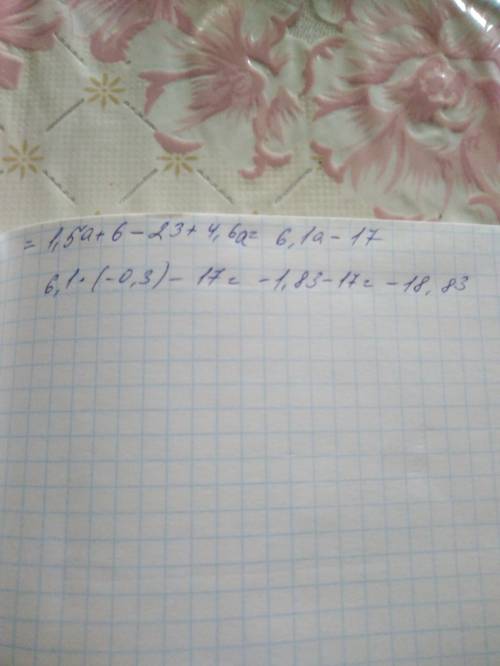 = 1,5a + 6 - 23 + 4,6a = 6,1a - 17
6,1 · (-0,3) - 17 = -1,83 - 17 = -18,83